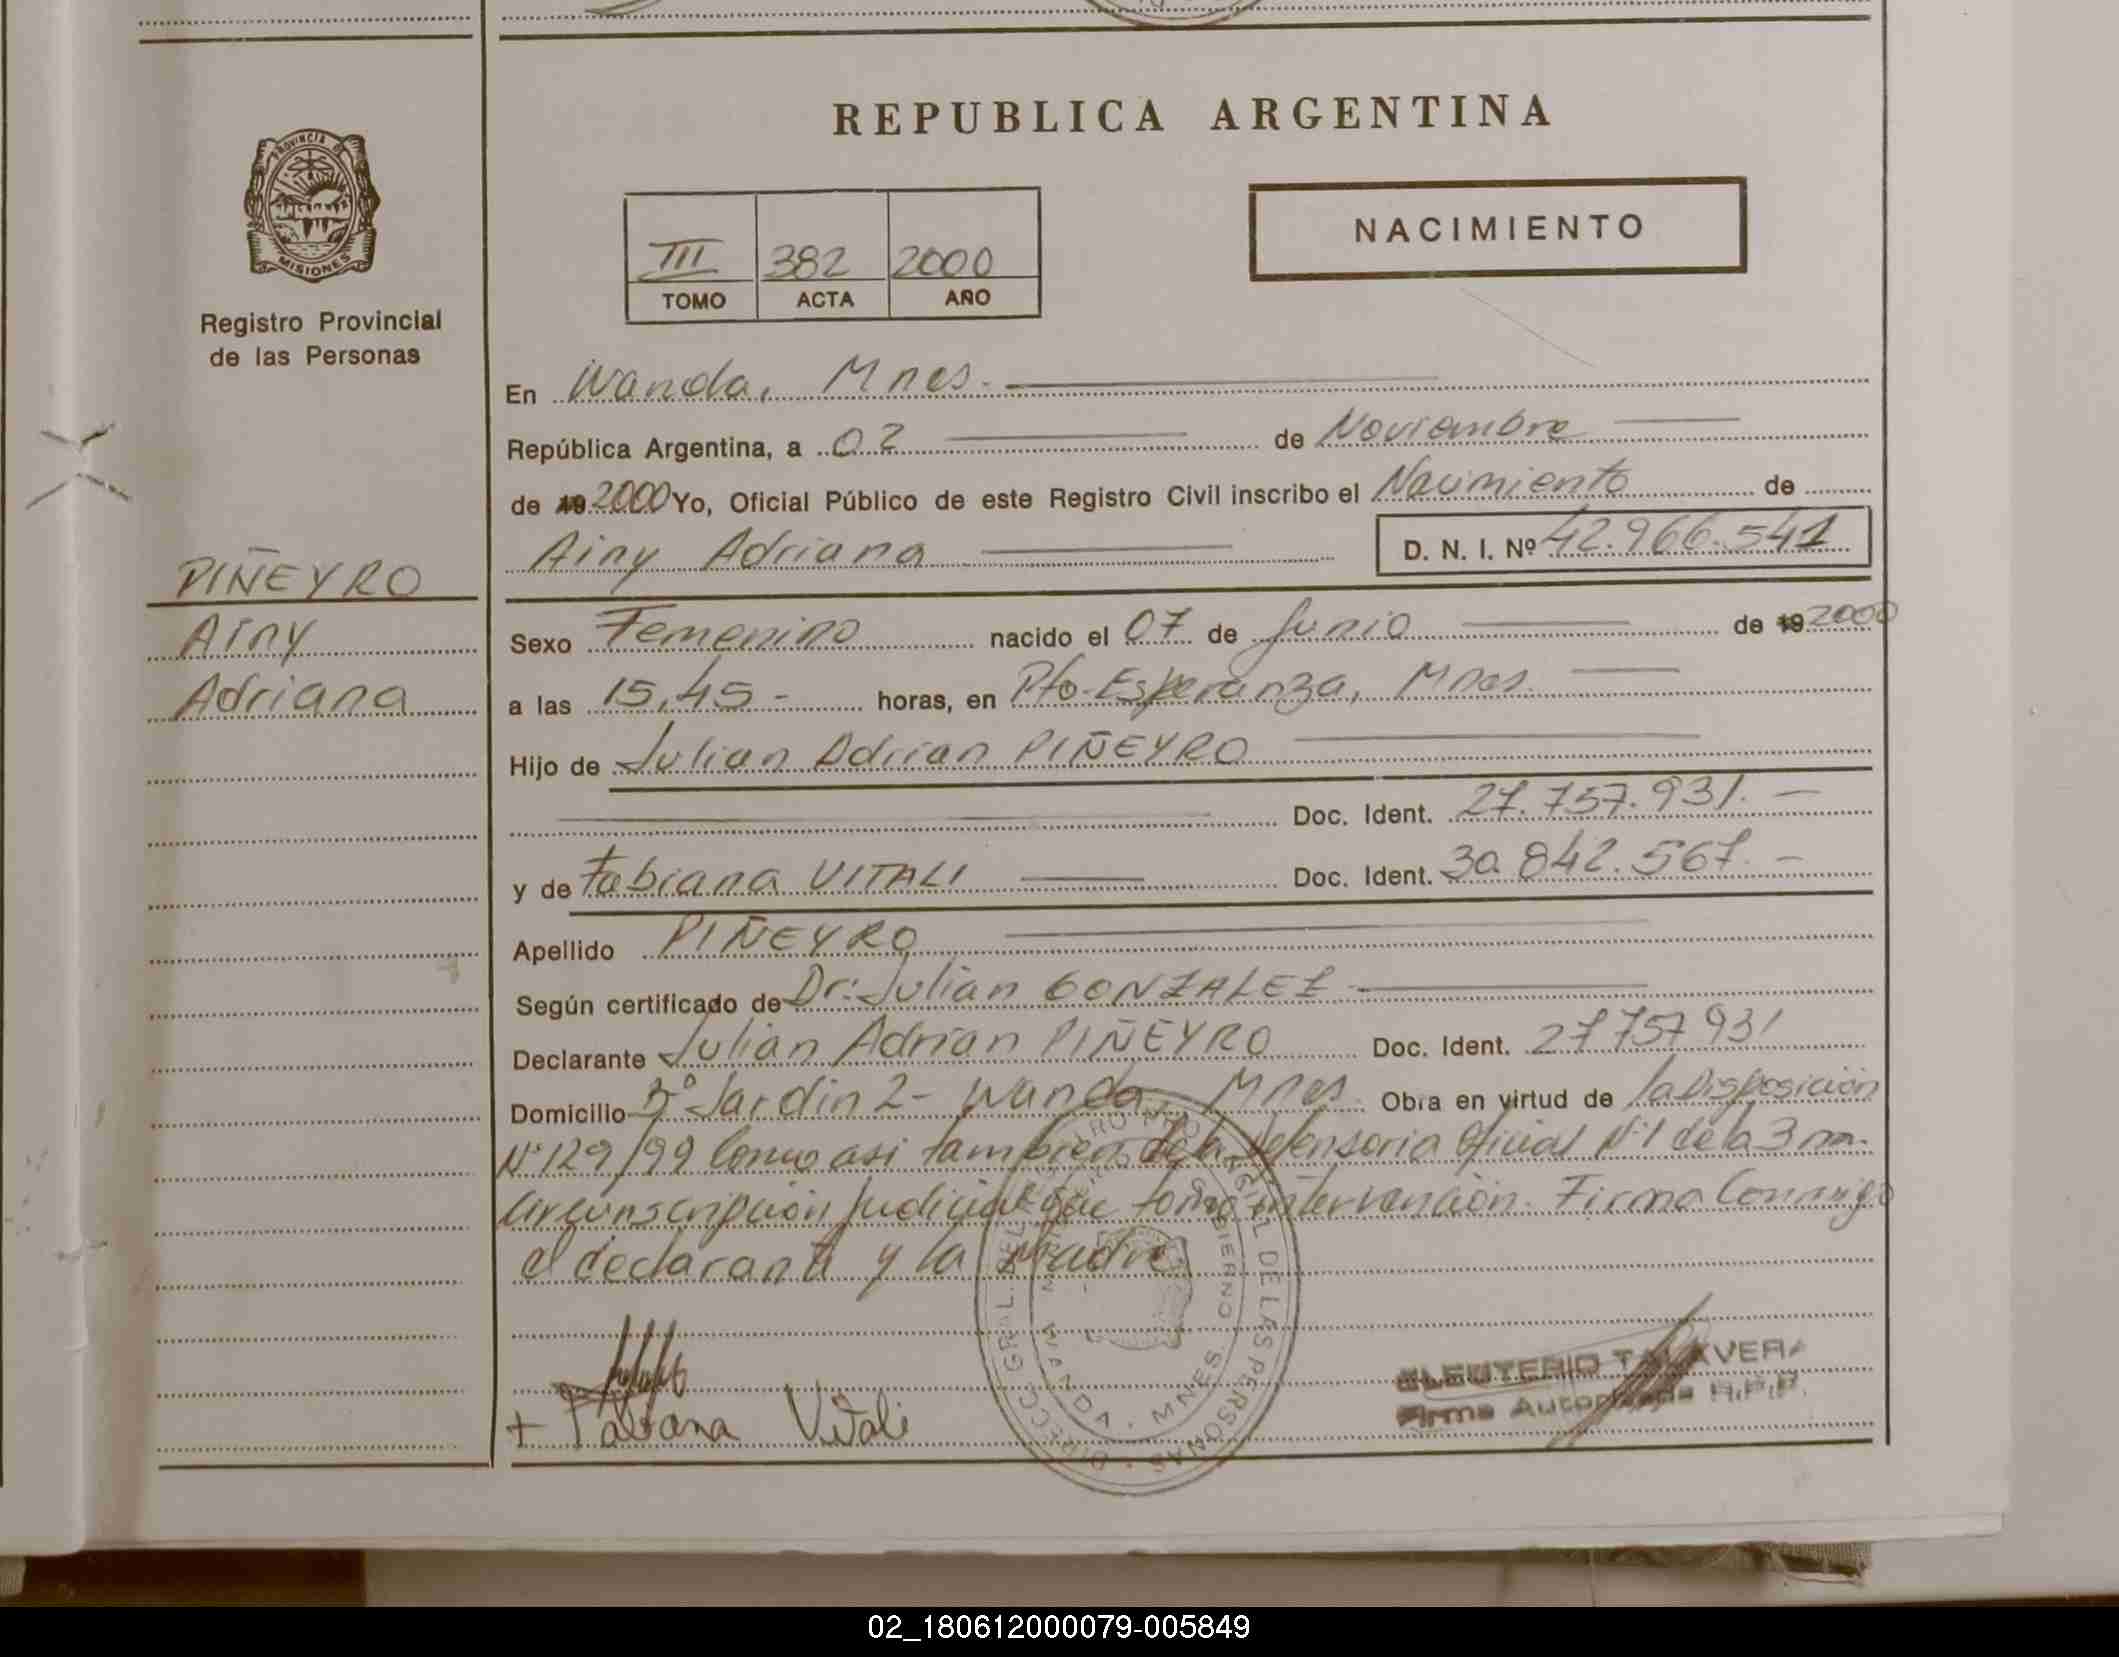 REPUBLICA ARGENTINA
PROVINCIA DE
MISIONES
Registro Provincial
de las Personas
III 382 2000
TOMO ACTA AÑO
NACIMIENTO
En Wanda, Mnes.
República Argentina, a 02 de Noviembre
de 19 2000 Yo, Oficial Público de este Registro Civil inscribo el Nacimiento de
Ainy Adriana D. N. I. Nº 42.966.541
PIÑEYRO
Ainy
Adriana
Sexo Femenino nacido el 07 de Junio de 19 2000
a las 15,45 - horas, en Pto. Esperanza, Mnes.
Hijo de Julian Adrian PIÑEYRO
Doc. Ident. 27.757.931. -
y de Fabiana VITALI Doc. Ident. 30.842.567. -
Apellido PIÑEYRO
Según certificado de Dr: Julian GONZALEZ
Declarante Julian Adrian PIÑEYRO Doc. Ident. 27 757 931
Domicilio Bº Jardin 2 - Wanda, Mnes. Obra en virtud de la Disposición
Nº 129/99 Como asi tambien de la defensoria Oficial Nº 1 de la 3 ra.
Circunscripción Judicial que tomo intervención. Firma Conmigo
el declarante y la Madre
WANDA . MNES.
+ Fabiana Vitali
ELEUTERIO TALAVERA
Firma Autorizada R.P.P.
02_180612000079-005849